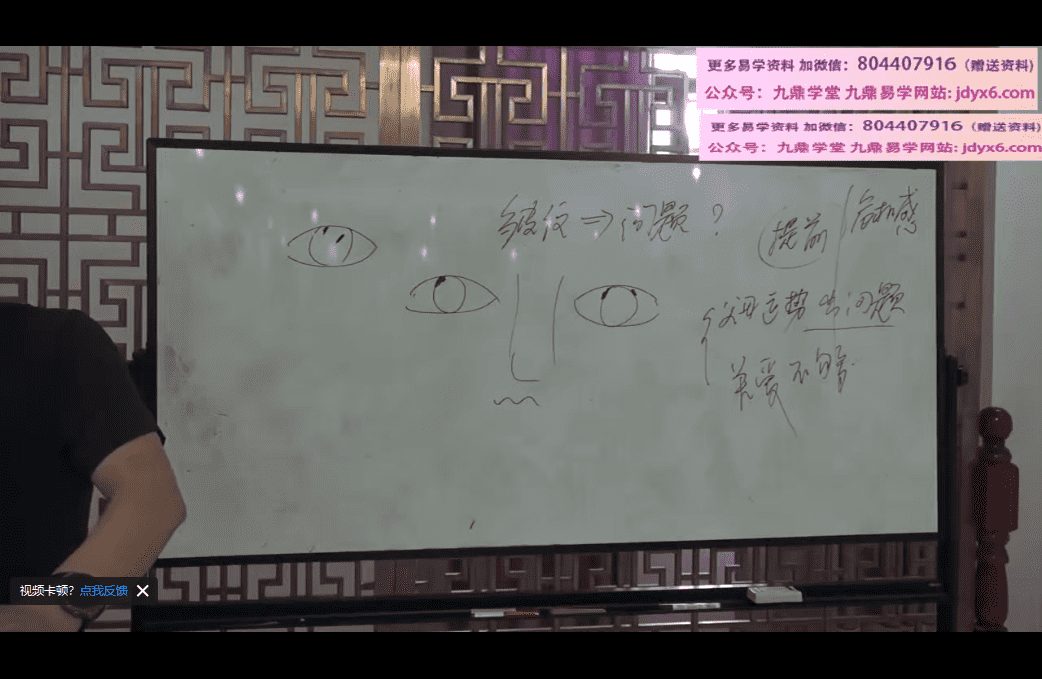 更多易学资料 加微信：804407916（赠送资料)
公众号：九鼎学堂 九鼎易学网站: jdyx6.com
更多易学资料 加微信：804407916（赠送资料)
公众号：九鼎学堂 九鼎易学网站: jdyx6.com
皱纹⇒问题？
提前
危机感
父母运势出问题
关爱不够
视频卡顿？点我反馈